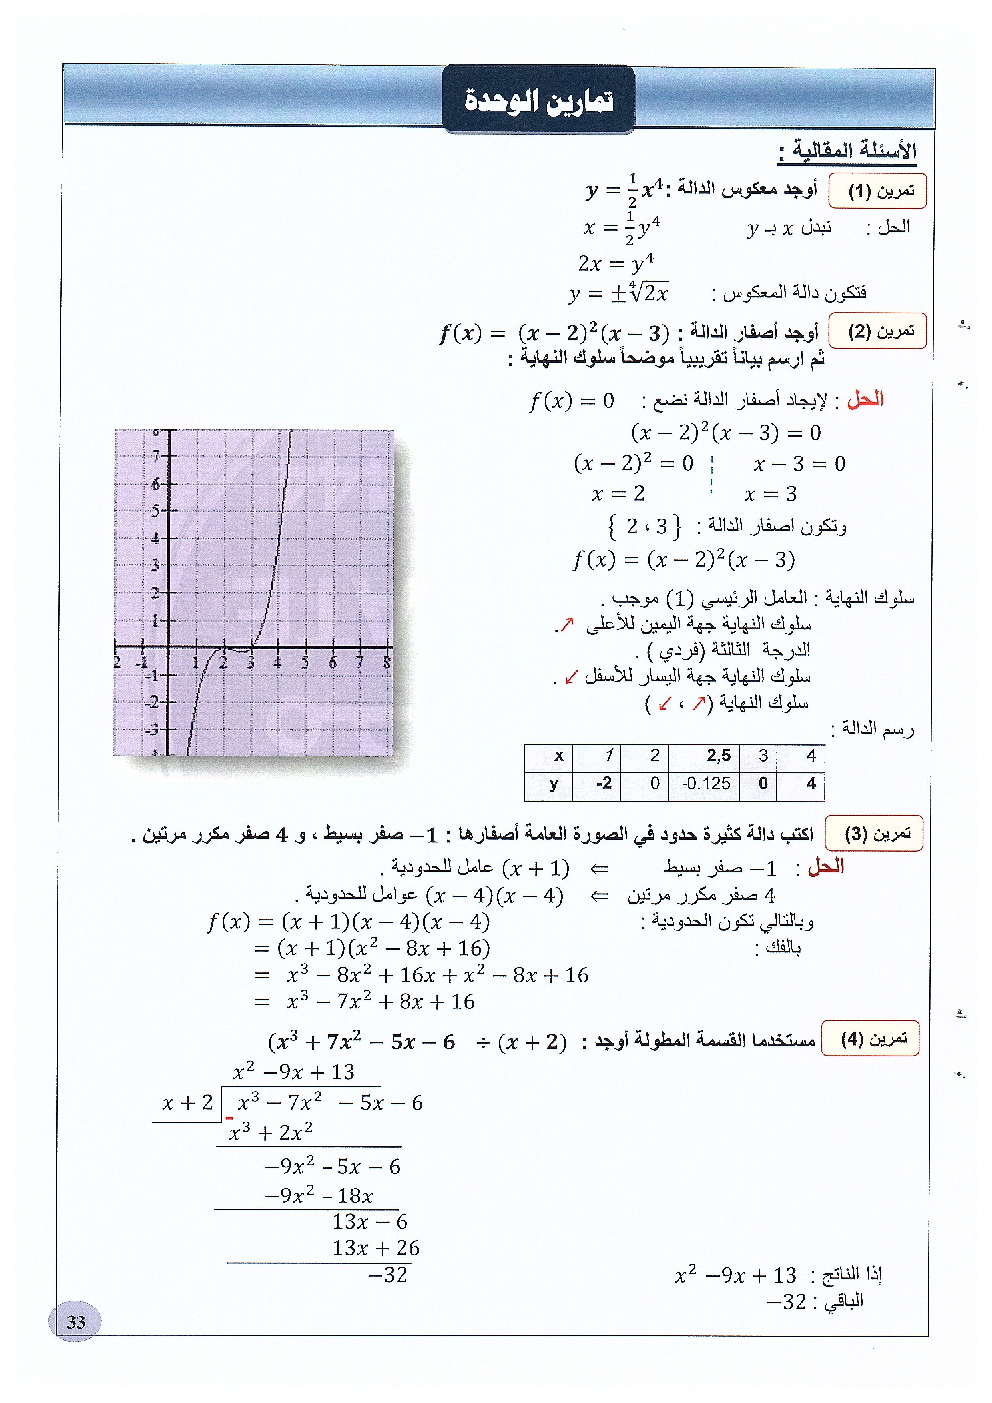 تمارين الوحدة
الأسئلة المقالية :
تمرين (1) أوجد معكوس الدالة : y = 1/2 x⁴
الحل : نبدل x بـ y x = 1/2 y⁴
2x = y⁴
فتكون دالة المعكوس : y = ±∜2x
تمرين (2) أوجد أصفار الدالة : f(x) = (x − 2)²(x − 3)
ثم ارسم بياناً تقريبياً موضحاً سلوك النهاية :
الحل : لإيجاد أصفار الدالة نضع : f(x) = 0
(x − 2)²(x − 3) = 0
(x − 2)² = 0 ¦ x − 3 = 0
x = 2 ¦ x = 3
وتكون اصفار الدالة : { 2 ، 3 }
f(x) = (x − 2)²(x − 3)
سلوك النهاية : العامل الرئيسي (1) موجب .
سلوك النهاية جهة اليمين للأعلى ↗.
الدرجة الثالثة (فردي ) .
سلوك النهاية جهة اليسار للأسفل ↙ .
سلوك النهاية (↗ ، ↙ )
رسم الدالة :
x 1 2 2,5 3 4
y -2 0 -0.125 0 4
8
7
6
5
4
3
2
1
2 -1 1 2 3 4 5 6 7 8
-1
-2
-3
تمرين (3) اكتب دالة كثيرة حدود في الصورة العامة أصفارها : 1− صفر بسيط ، و 4 صفر مكرر مرتين .
الحل : 1− صفر بسيط ⇐ (x + 1) عامل للحدودية .
4 صفر مكرر مرتين ⇐ (x − 4)(x − 4) عوامل للحدودية .
وبالتالي تكون الحدودية : f(x) = (x + 1)(x − 4)(x − 4)
بالفك : = (x + 1)(x² − 8x + 16)
= x³ − 8x² + 16x + x² − 8x + 16
= x³ − 7x² + 8x + 16
تمرين (4) مستخدما القسمة المطولة أوجد : (x³ + 7x² − 5x − 6 ÷ (x + 2)
x² −9x + 13
x + 2 x³ − 7x² − 5x − 6
− x³ + 2x²
−9x² - 5x − 6
−9x² - 18x
13x − 6
13x + 26
−32
إذا الناتج : x² −9x + 13
الباقي : 32−
33